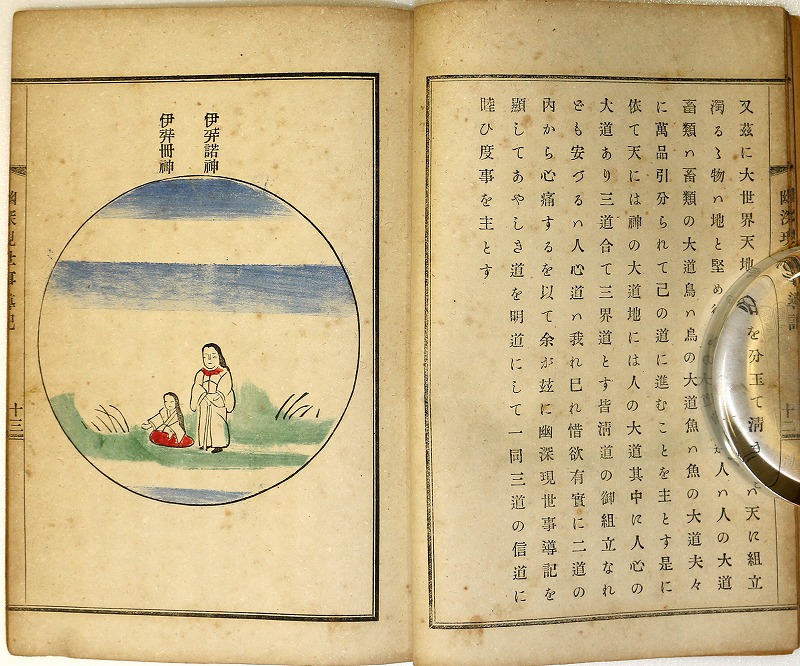 又茲に大世界天地 を分玉て淸 ハ天に組立
濁るゝ物ハ地と堅め 人ハ人の大道
畜類ハ畜類の大道鳥ハ鳥の大道魚ハ魚の大道夫々
に萬品引分られて己の道に進むことを主とす是に
依て天には神の大道地には人の大道其中に人心の
大道あり三道合て三界道とす皆淸道の御組立なれ
ども安づるハ人心道ハ我れ巳れ惜欲有實に二道の
內から心痛するを以て余が玆に幽深現世事導記を
顯してあやしき道を明道にして一同三道の信道に
睦ひ度事を主とす
伊弉諾神
伊弉冊神
幽深現世事導記
十三